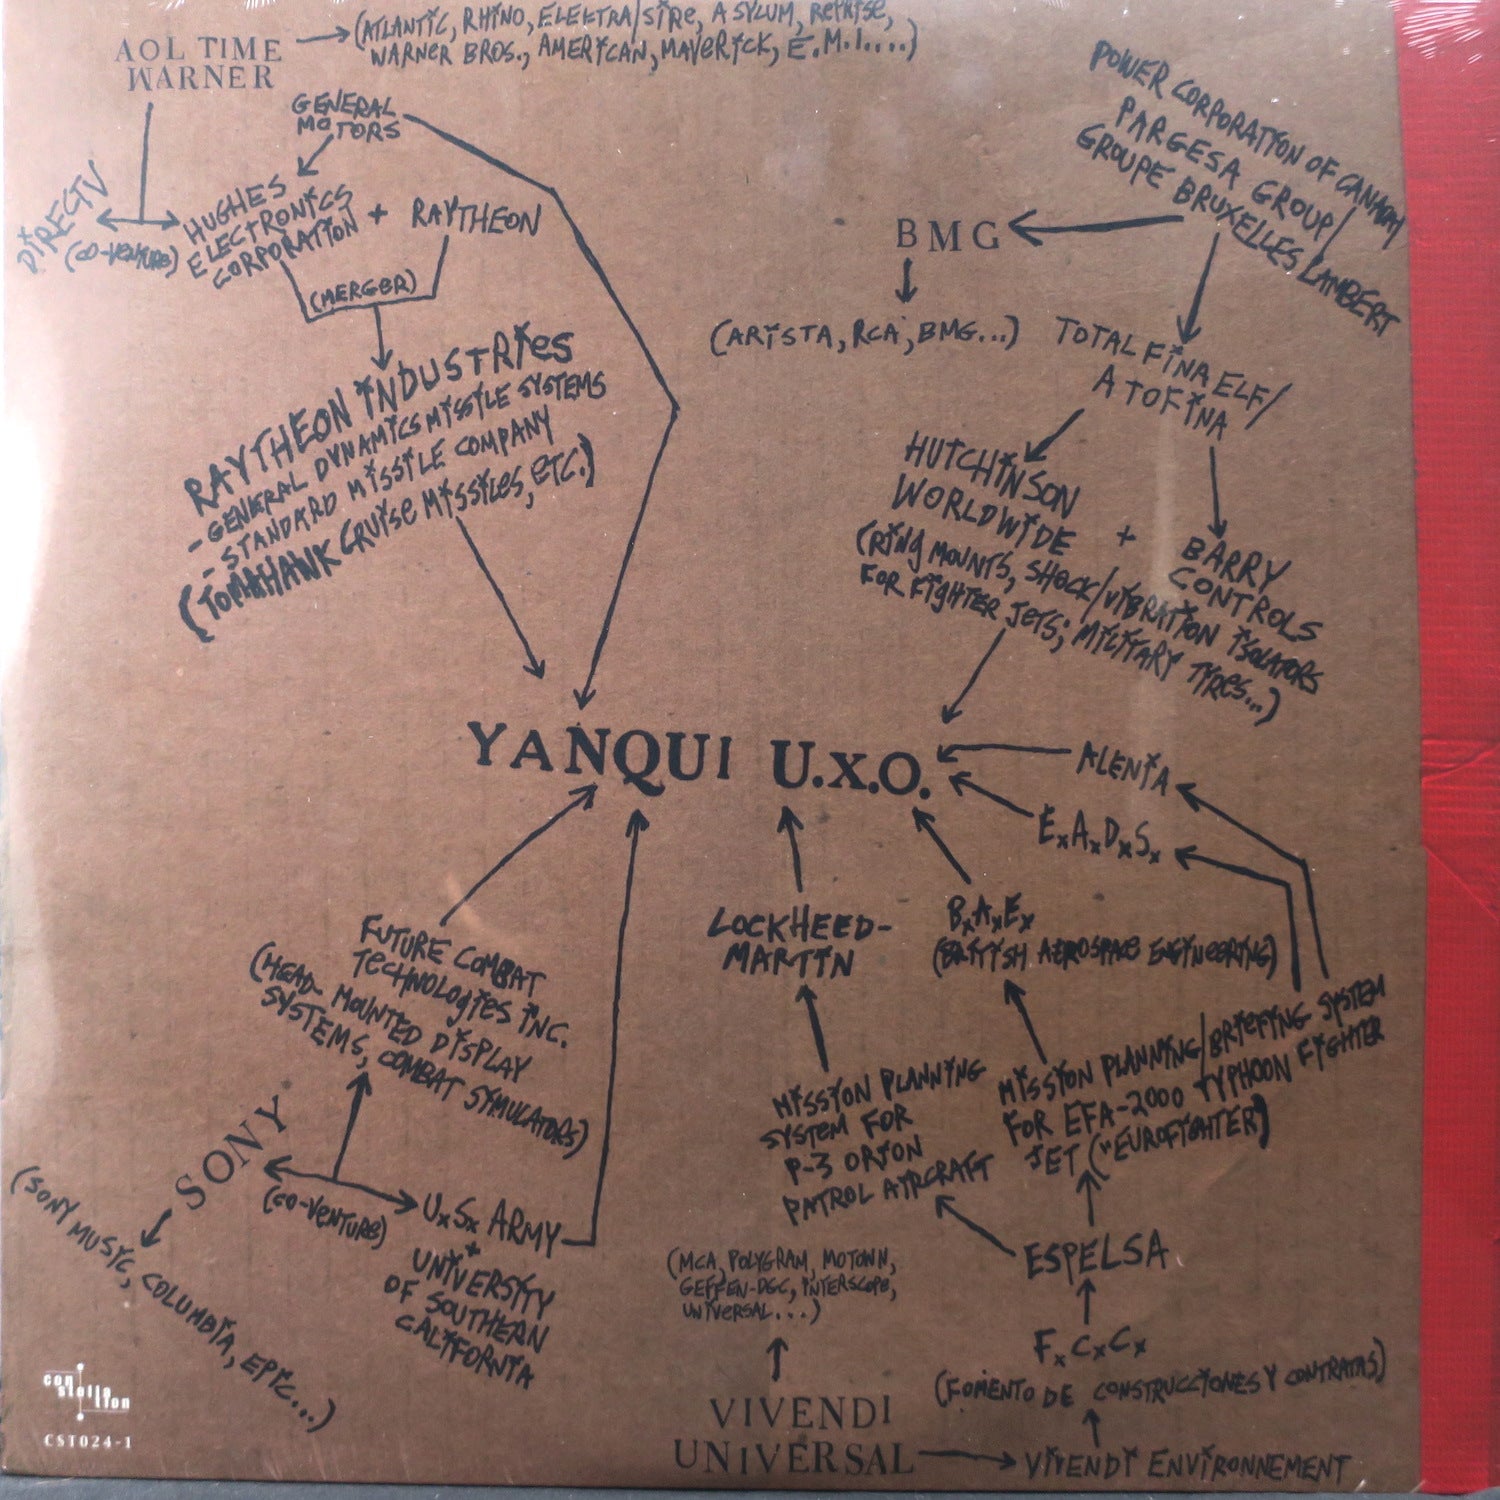 AOL TIME
WARNER
(ATLANTIC, RHINO, ELEKTRA/SIRE, ASYLUM, REPRISE,
WARNER BROS., AMERICAN, MAVERICK, E.M.I....)
POWER CORPORATION OF CANADA/
PARGESA GROUP/
GROUPE BRUXELLES LAMBERT
GENERAL
MOTORS
DIRECTV
(CO-VENTURE)
HUGHES
ELECTRONICS
CORPORATION
+
RAYTHEON
(MERGER)
BMG
(ARISTA, RCA, BMG...)
TOTAL FINA ELF/
ATOFINA
RAYTHEON INDUSTRIES
- GENERAL DYNAMICS MISSILE SYSTEMS
- STANDARD MISSILE COMPANY
(TOMAHAWK CRUISE MISSILES, ETC.)
HUTCHINSON
WORLDWIDE
+
BARRY
CONTROLS
(RING MOUNTS, SHOCK/VIBRATION ISOLATORS
FOR FIGHTER JETS; MILITARY TYRES...)
YANQUI U.X.O.
ALENIA
E.A.D.S.
FUTURE COMBAT
TECHNOLOGIES INC.
(HEAD-MOUNTED DISPLAY
SYSTEMS, COMBAT SIMULATORS)
LOCKHEED-
MARTIN
B.A.E.
(BRITISH AEROSPACE ENGINEERING)
MISSION PLANNING
SYSTEM FOR
P-3 ORION
PATROL AIRCRAFT
MISSION PLANNING/BRIEFING SYSTEM
FOR EFA-2000 TYPHOON FIGHTER
JET ("EUROFIGHTER)
SONY
(CO-VENTURE)
(SONY MUSIC, COLUMBIA, EPIC...)
U.S. ARMY
+
UNIVERSITY
OF SOUTHERN
CALIFORNIA
ESPELSA
(MCA, POLYGRAM, MOTOWN,
GEFFEN-DGC, INTERSCOPE,
UNIVERSAL...)
F.C.C.
(FOMENTO DE CONSTRUCCIONES Y CONTRATAS)
VIVENDI
UNIVERSAL
VIVENDI ENVIRONNEMENT
con
stella
tion
CST024-1